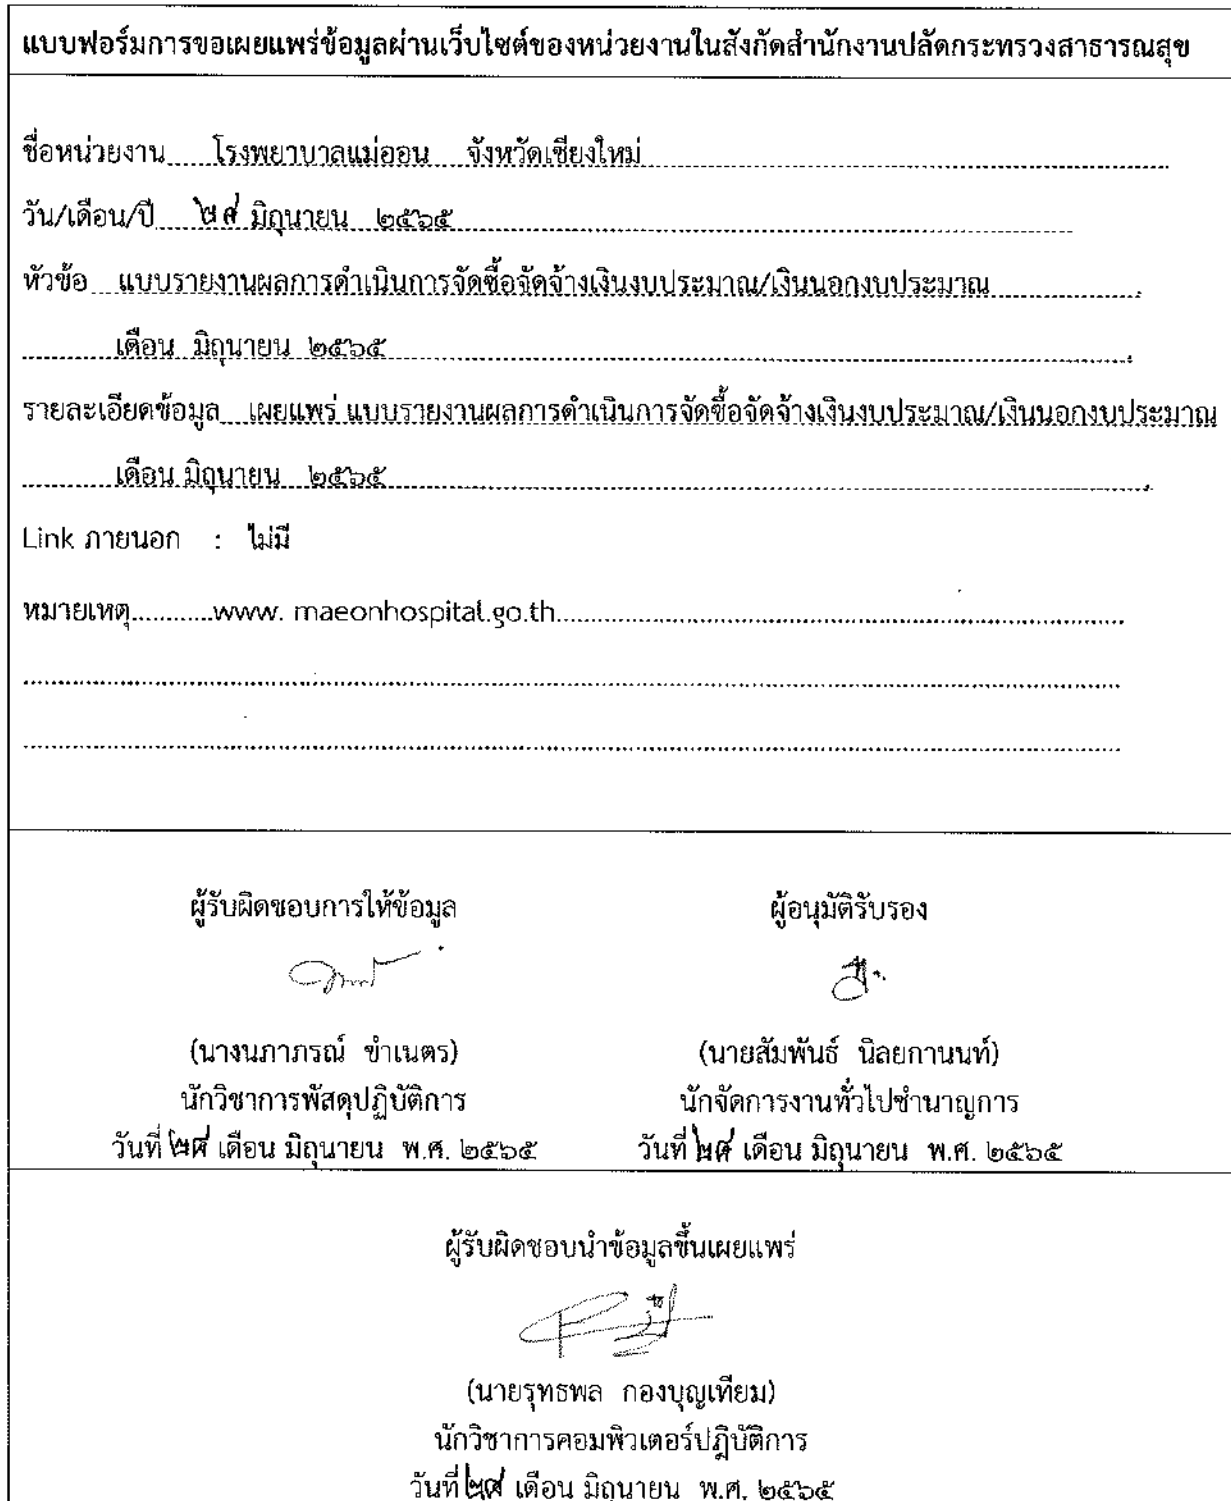 แบบฟอร์มการขอเผยแพร่ข้อมูลผ่านเว็บไซต์ของหน่วยงานในสังกัดสำนักงานปลัดกระทรวงสาธารณสุข
ชื่อหน่วยงาน.....โรงพยาบาลแม่ออน จังหวัดเชียงใหม่
วัน/เดือน/ปี.....๒๙ มิถุนายน ๒๕๖๕
หัวข้อ...แบบรายงานผลการดำเนินการจัดซื้อจัดจ้างเงินงบประมาณ/เงินนอกงบประมาณ
เดือน มิถุนายน ๒๕๖๕
รายละเอียดข้อมูล...เผยแพร่ แบบรายงานผลการดำเนินการจัดซื้อจัดจ้างเงินงบประมาณ/เงินนอกงบประมาณ
เดือน มิถุนายน ๒๕๖๕
Link ภายนอก : ไม่มี
หมายเหตุ............www. maeonhospital.go.th
ผู้รับผิดชอบการให้ข้อมูล ผู้อนุมัติรับรอง
(นางนภาภรณ์ ขำเนตร) (นายสัมพันธ์ นิลยกานนท์)
นักวิชาการพัสดุปฏิบัติการ นักจัดการงานทั่วไปชำนาญการ
วันที่ ๒๙ เดือน มิถุนายน พ.ศ. ๒๕๖๕ วันที่ ๒๙ เดือน มิถุนายน พ.ศ. ๒๕๖๕
ผู้รับผิดชอบนำข้อมูลขึ้นเผยแพร่
(นายรุทธพล กองบุญเทียม)
นักวิชาการคอมพิวเตอร์ปฏิบัติการ
วันที่ ๒๙ เดือน มิถุนายน พ.ศ. ๒๕๖๕